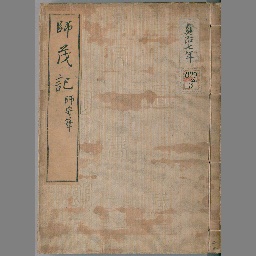 師茂記
師守筆
貞治七年